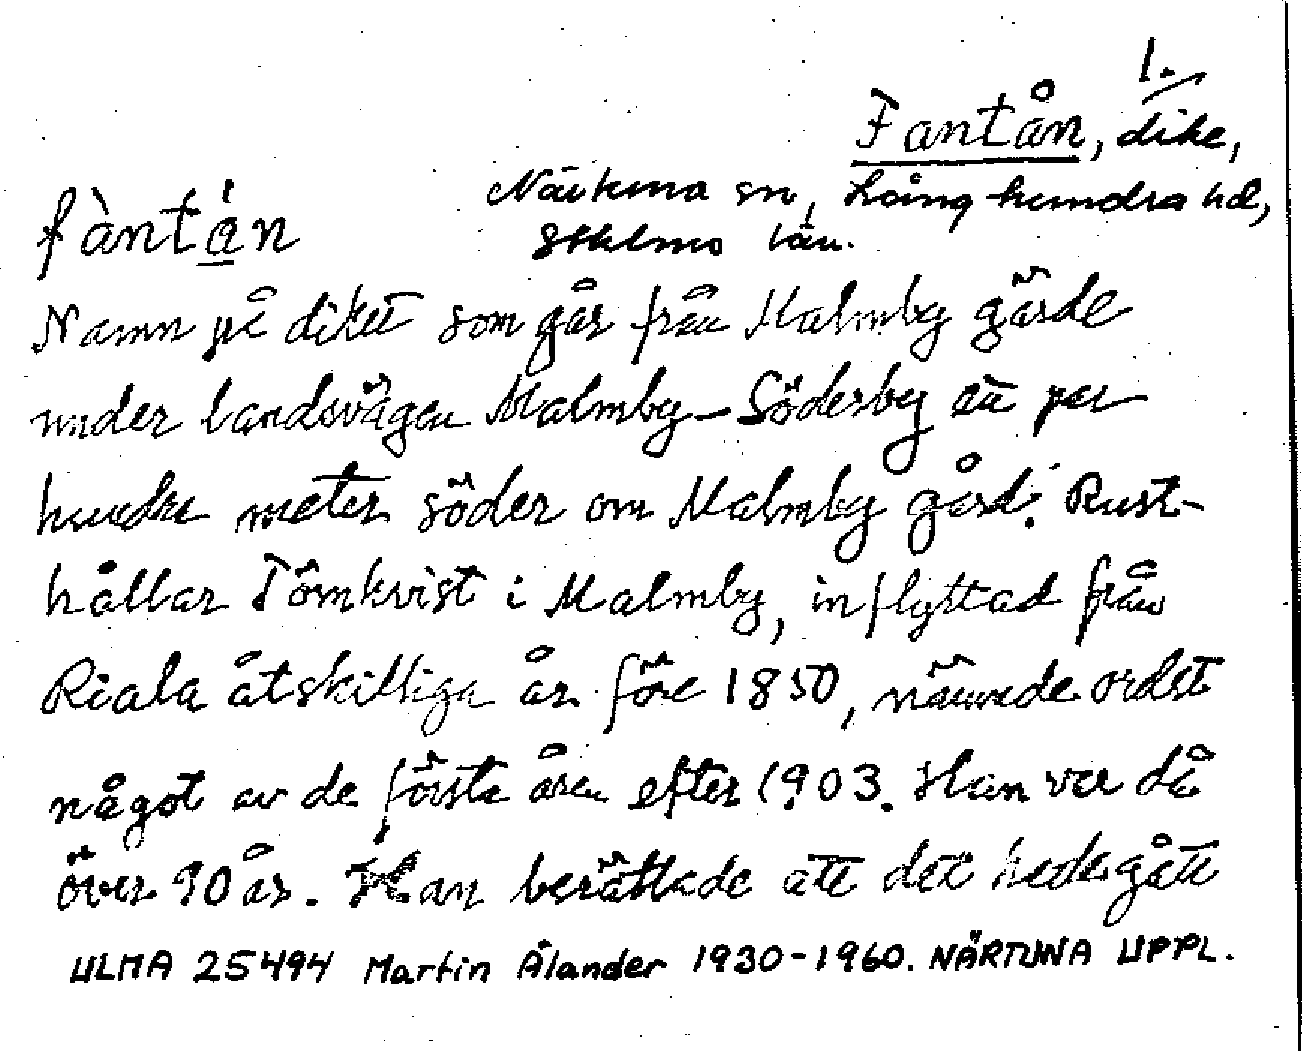 1.
Fantån, dike,
Närtuna sn, Långhundra hd,
Sthlms län.
fàntá̱n
Namn på diket som går från Malmby gärde
under landsvägen Malmby-Söderby ett par
hundra meter söder om Malmby gård. Rust-
hållar Törnkvist i Malmby, inflyttad från
Riala åtskilliga år före 1850, nämnde ordet
något av de första åren efter 1903. Han var då
över 90 år. Han berättade att det hade gått
ULMA 25494 Martin Ålander 1930-1960. NÄRTUNA UPPL.